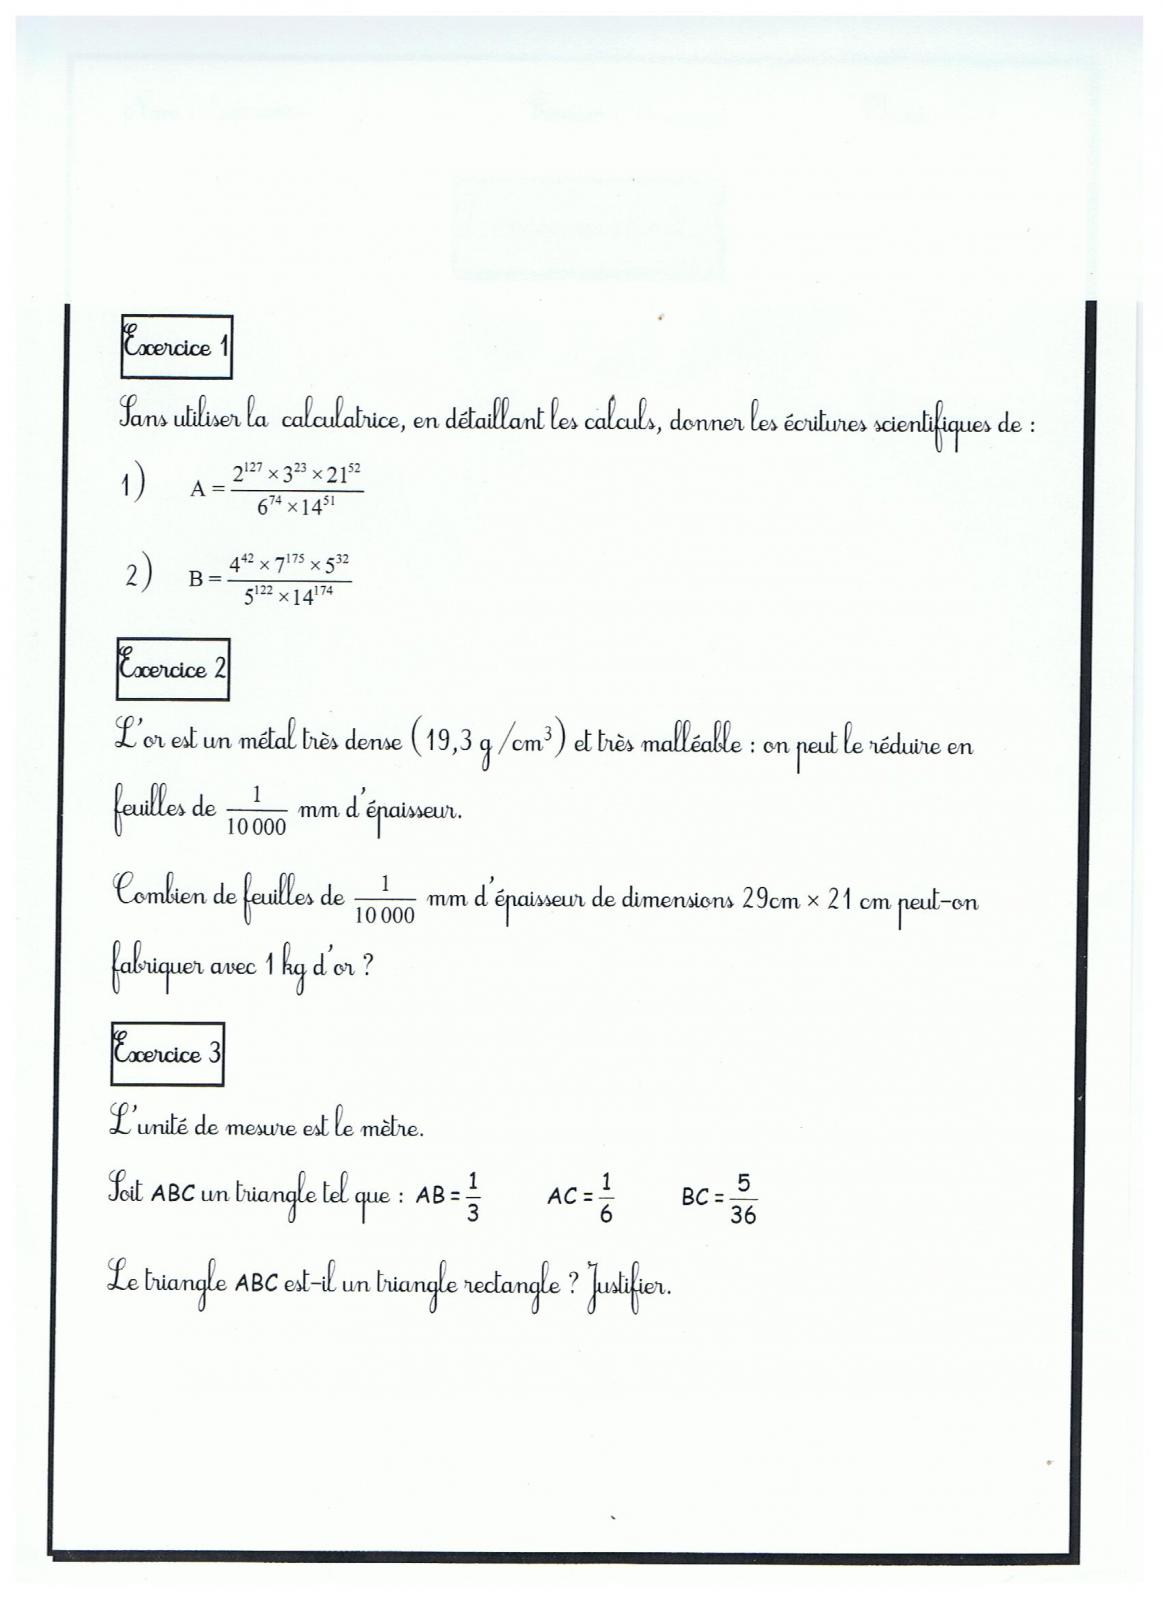 Exercice 1
Sans utiliser la calculatrice, en détaillant les calculs, donner les écritures scientifiques de :
1) A = (2^127 × 3^23 × 21^52) / (6^74 × 14^51)
2) B = (4^42 × 7^175 × 5^32) / (5^122 × 14^174)
Exercice 2
L'or est un métal très dense (19,3 g /cm³) et très malléable : on peut le réduire en
feuilles de 1/10 000 mm d'épaisseur.
Combien de feuilles de 1/10 000 mm d'épaisseur de dimensions 29cm × 21 cm peut-on
fabriquer avec 1 kg d'or ?
Exercice 3
L'unité de mesure est le mètre.
Soit ABC un triangle tel que : AB = 1/3 AC = 1/6 BC = 5/36
Le triangle ABC est-il un triangle rectangle ? Justifier.